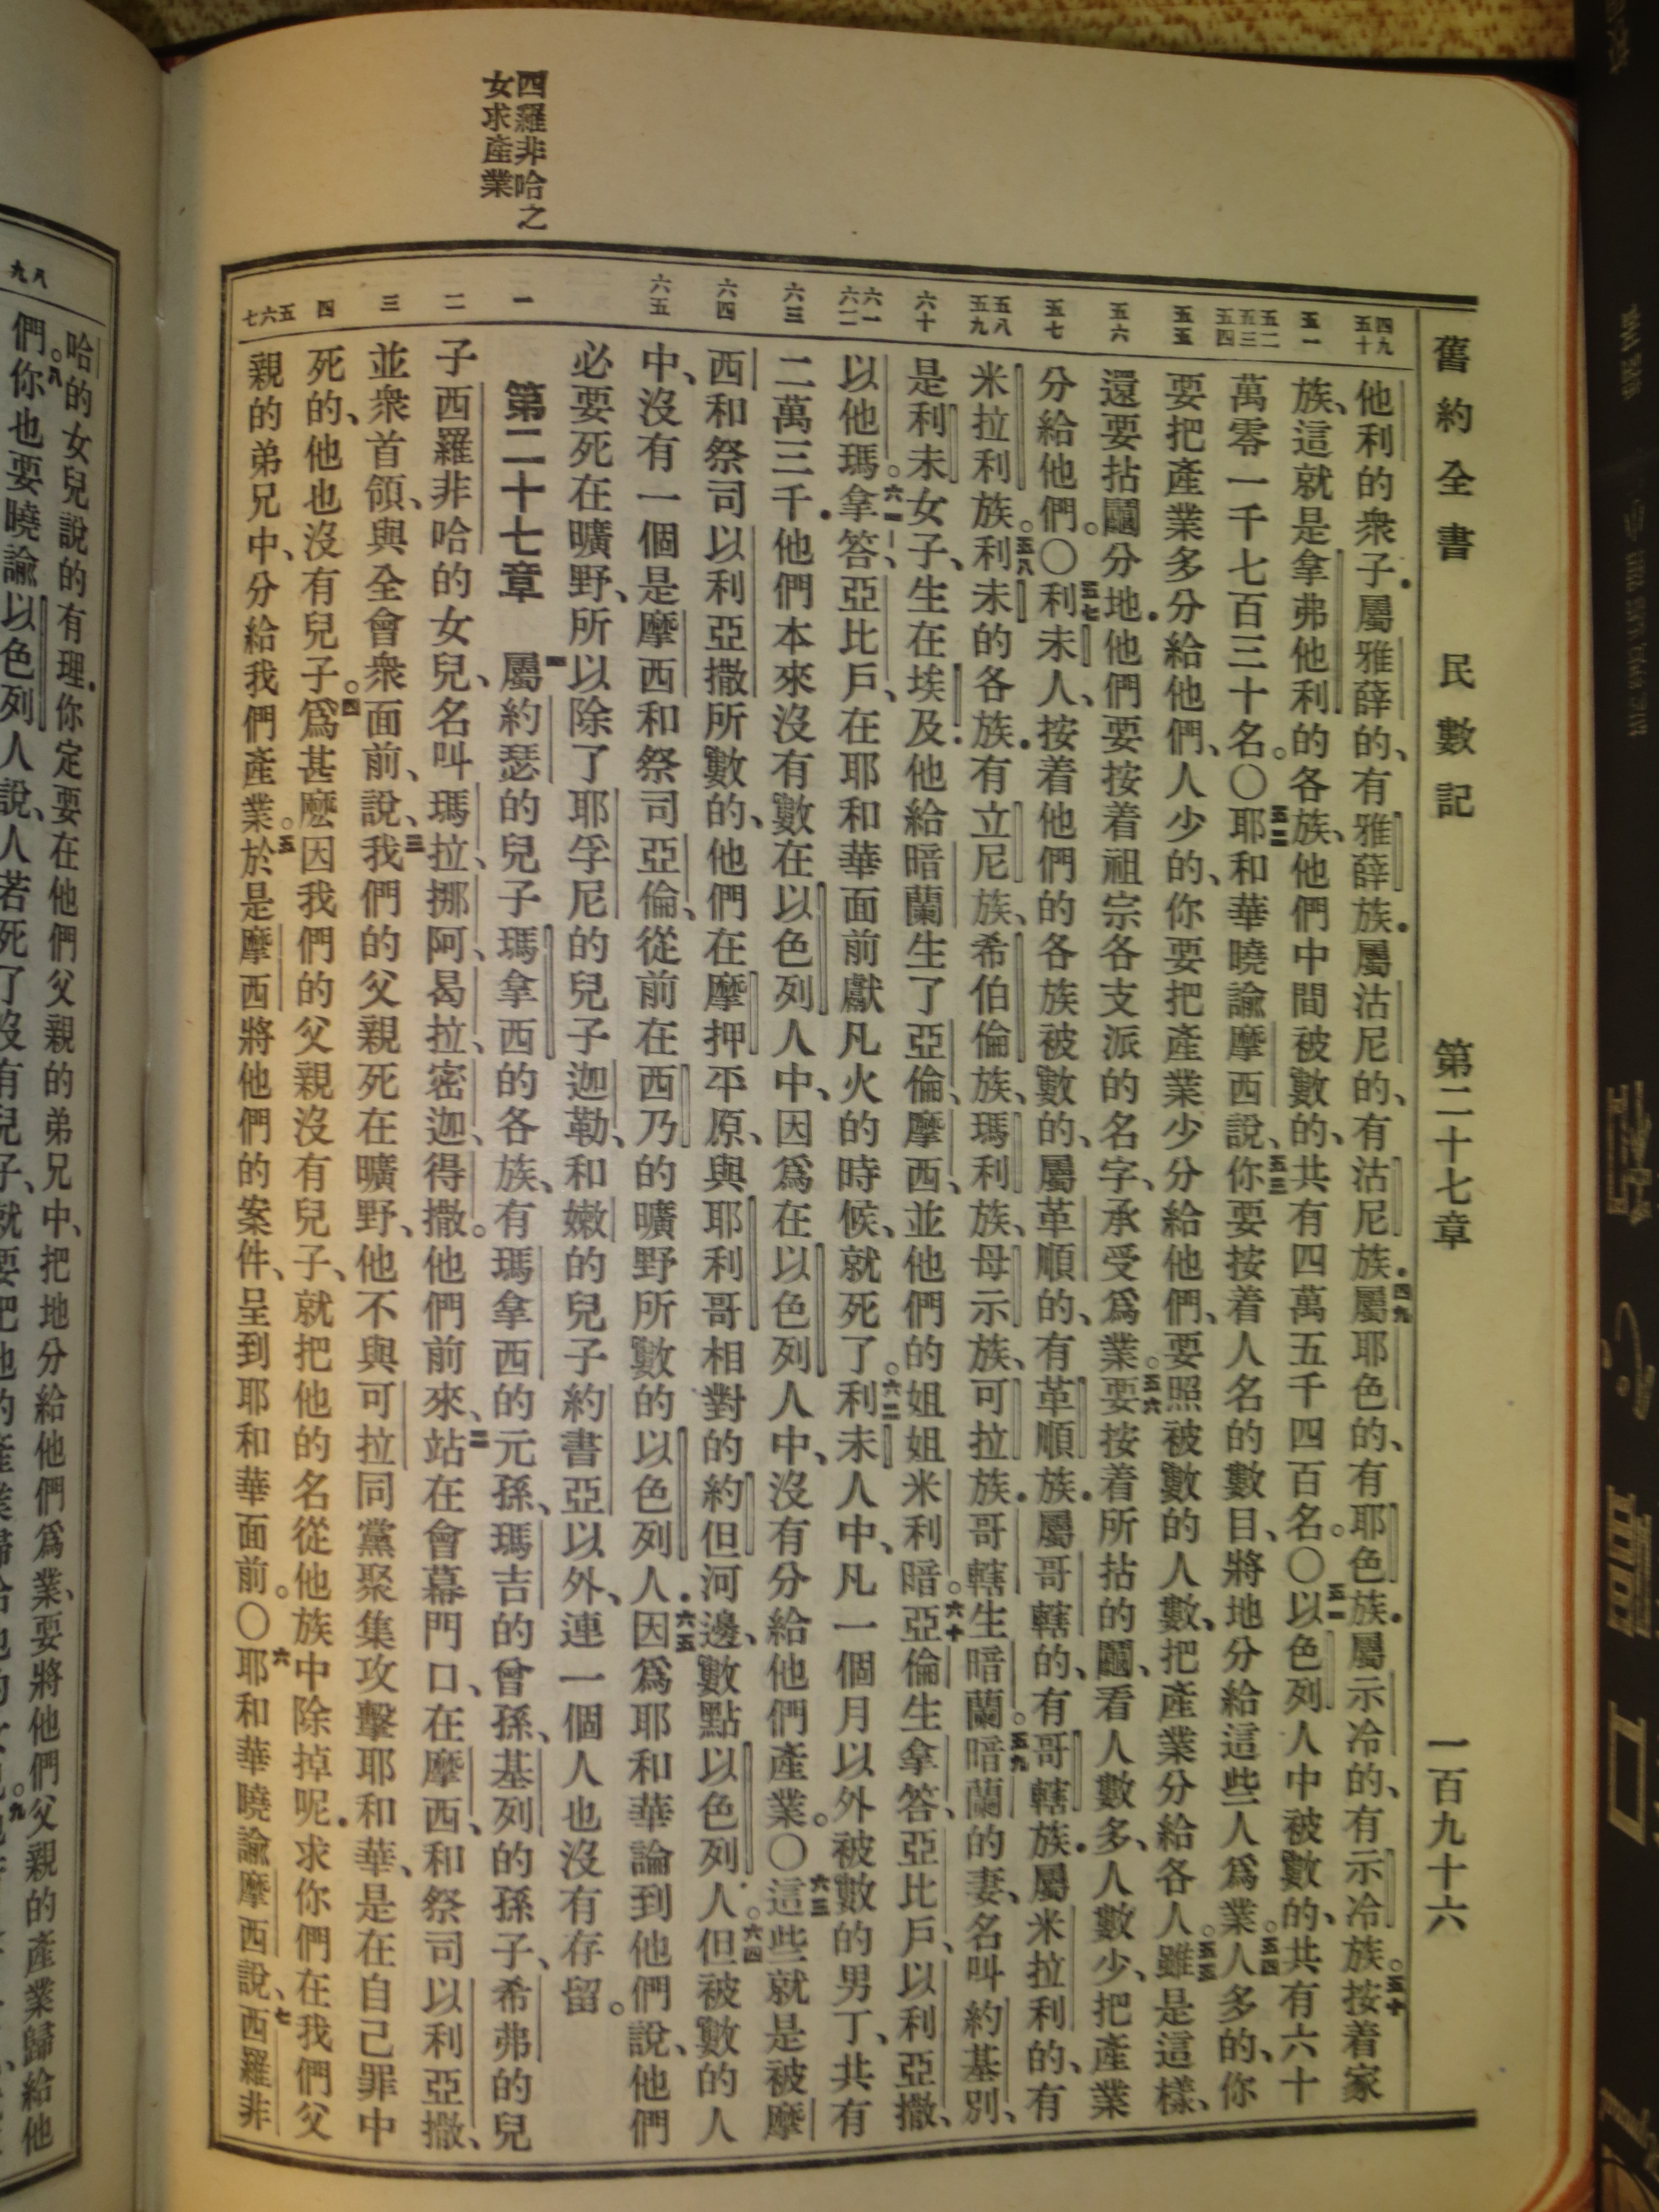 舊約全書　民數記　第二十七章　一百九十六
四九 五十
五一
五二 五三 五四
五五
五六
五七
五八 五九
六十
六一 六二
六三
六四
六五
一
二
三
四
五 六 七
他利的衆子．屬雅薛的、有雅薛族．屬沽尼的、有沽尼族．四九屬耶色的、有耶色族．屬示冷的、有示冷族。五十按着家
族、這就是拿弗他利的各族、他們中間被數的、共有四萬五千四百名。〇五一以色列人中被數的、共有六十
萬零一千七百三十名。〇五二耶和華曉諭摩西說、五三你要按着人名的數目、將地分給這些人爲業。五四人多的、你
要把產業多分給他們、人少的、你要把產業少分給他們、要照被數的人數、把產業分給各人。五五雖是這樣、
還要拈鬮分地．他們要按着祖宗各支派的名字、承受爲業。五六要按着所拈的鬮、看人數多、人數少、把產業
分給他們。〇五七利未人、按着他們的各族被數的、屬革順的、有革順族．屬哥轄的、有哥轄族．屬米拉利的、有
米拉利族。五八利未的各族．有立尼族、希伯倫族、瑪利族、母示族、可拉族．哥轄生暗蘭。五九暗蘭的妻、名叫約基別、
是利未女子、生在埃及．他給暗蘭生了亞倫、摩西、並他們的姐姐米利暗。六十亞倫生拿答、亞比戶、以利亞撒、
以他瑪。六一拿答、亞比戶、在耶和華面前獻凡火的時候、就死了。六二利未人中、凡一個月以外被數的男丁、共有
二萬三千．他們本來沒有數在以色列人中、因爲在以色列人中、沒有分給他們產業。〇六三這些就是被摩
西和祭司以利亞撒所數的、他們在摩押平原、與耶利哥相對的約但河邊、數點以色列人。六四但被數的人
中、沒有一個是摩西和祭司亞倫、從前在西乃的曠野所數的以色列人．六五因爲耶和華論到他們說、他們
必要死在曠野、所以除了耶孚尼的兒子迦勒、和嫩的兒子約書亞以外、連一個人也沒有存留。
第二十七章　一屬約瑟的兒子瑪拿西的各族、有瑪拿西的元孫、瑪吉的曾孫、基列的孫子、希弗的兒
子西羅非哈的女兒、名叫瑪拉、挪阿、曷拉、密迦、得撒。他們前來、二站在會幕門口、在摩西、和祭司以利亞撒、
並衆首領、與全會衆面前、說、三我們的父親死在曠野、他不與可拉同黨聚集攻擊耶和華、是在自己罪中
死的、他也沒有兒子。四爲甚麼因我們的父親沒有兒子、就把他的名從他族中除掉呢．求你們在我們父
親的弟兄中、分給我們產業。五於是摩西將他們的案件、呈到耶和華面前。〇六耶和華曉諭摩西說、七西羅非
四羅非哈之
女求產業
八 九
哈的女兒說的有理．你定要在他們父親的弟兄中、把地分給他們爲業、要將他們父親的產業歸給他
們。八你也要曉諭以色列人說、人若死了沒有兒子、就要把他的產業歸給他的